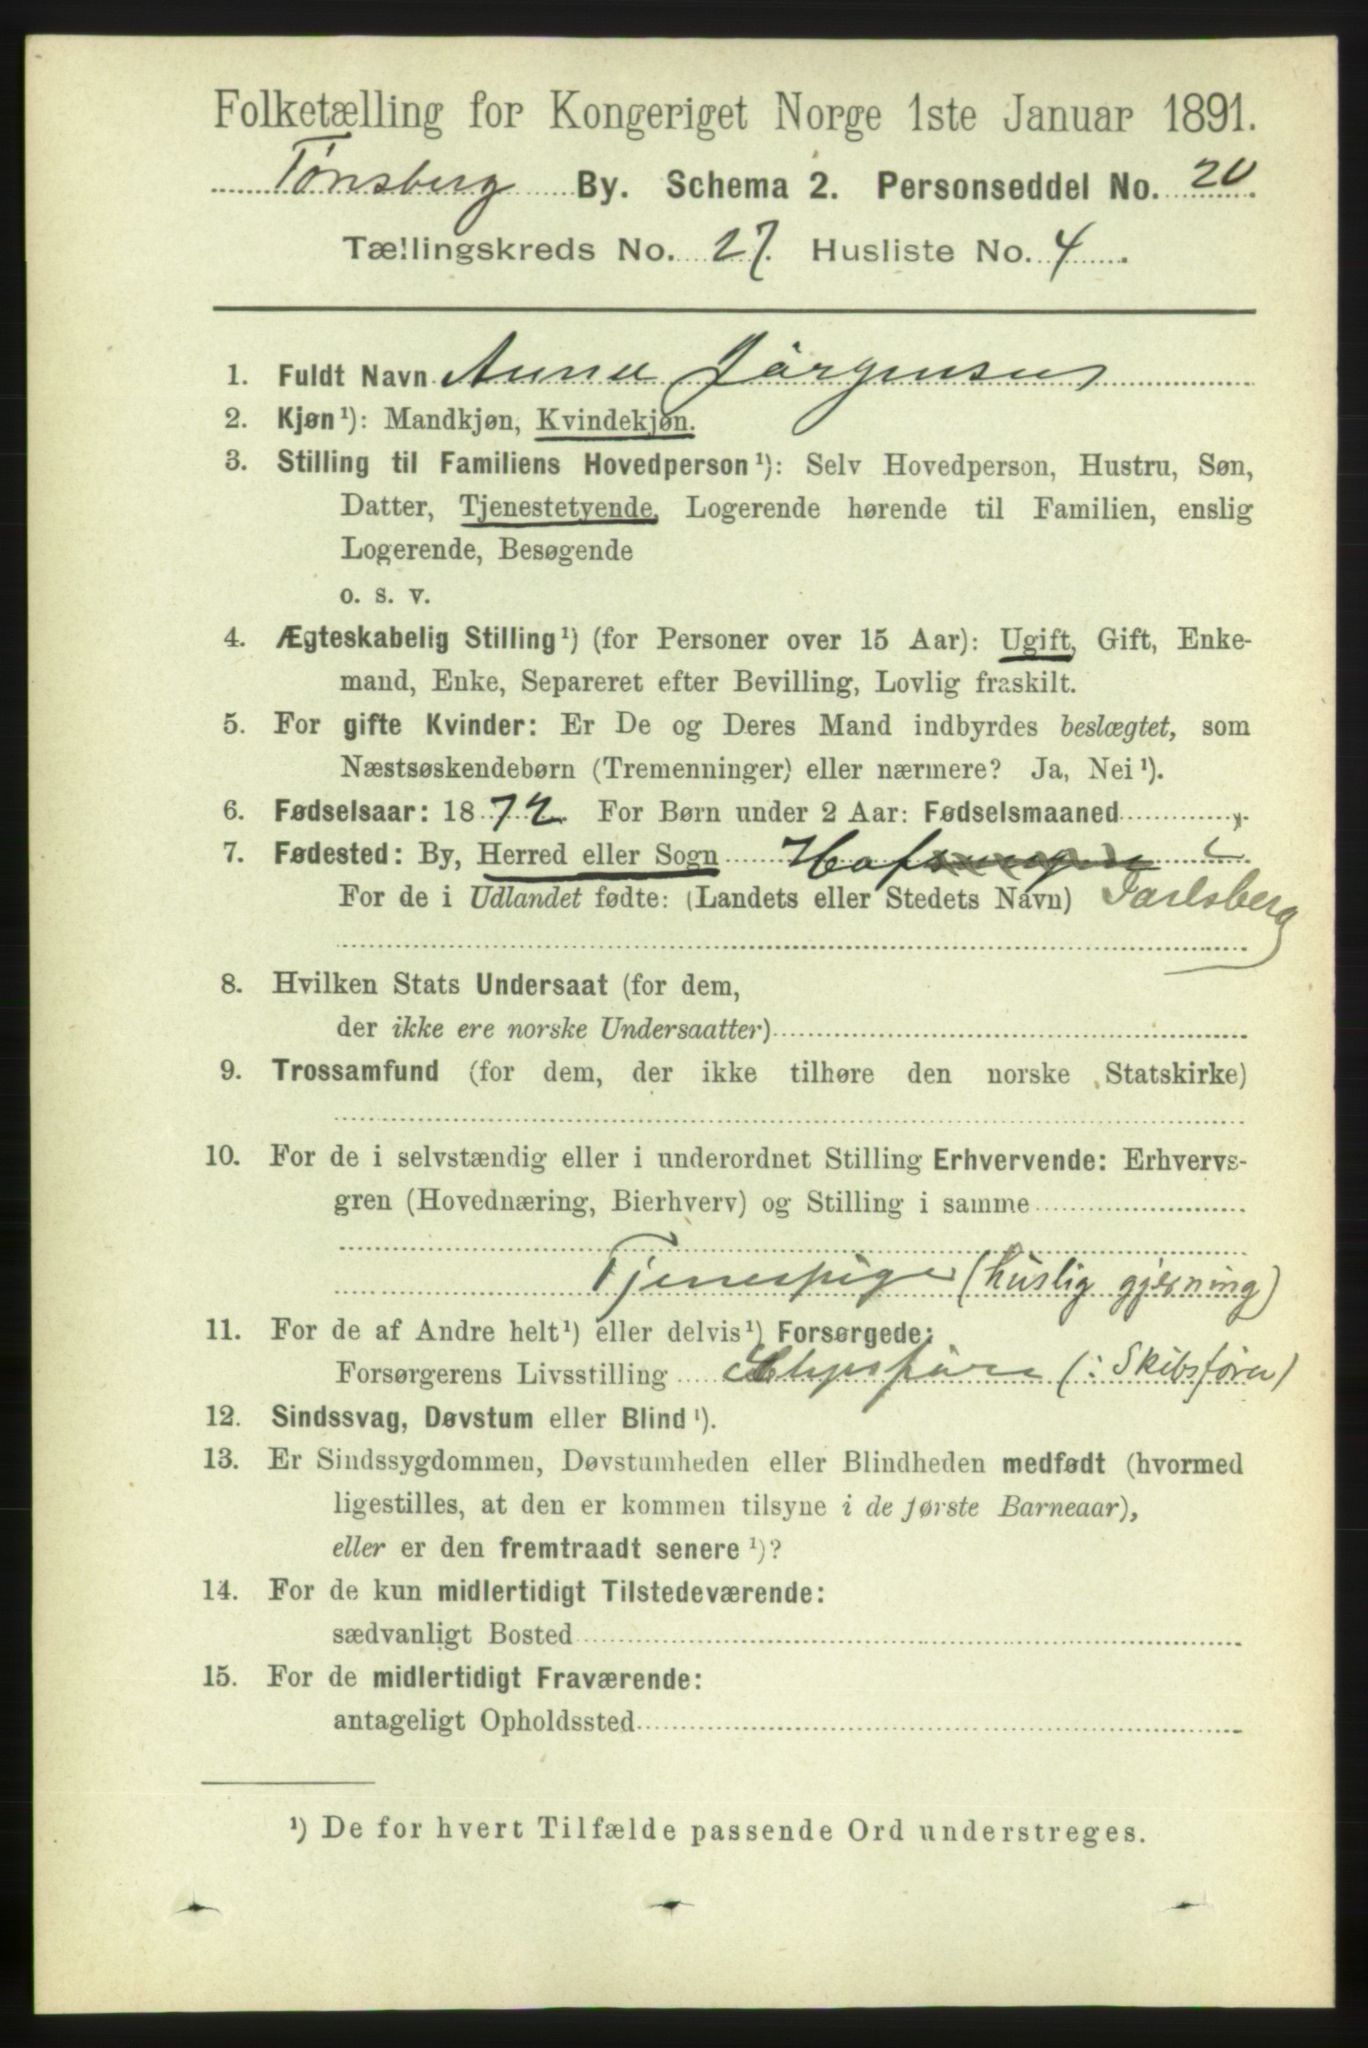 Folketælling for Kongeriget Norge 1ste Januar 1891.
Tønsberg By. Schema 2. Personseddel No. 20.
Tællingskreds No. 27. Husliste No. 4.
1. Fuldt Navn Anna Jörgensen
2. Kjøn¹): Mandkjøn, Kvindekjøn.
3. Stilling til Familiens Hovedperson¹): Selv Hovedperson, Hustru, Søn,
Datter, Tjenestetyende, Logerende hørende til Familien, enslig
Logerende, Besøgende
o. s. v.
4. Ægteskabelig Stilling¹) (for Personer over 15 Aar): Ugift, Gift, Enke-
mand, Enke, Separeret efter Bevilling, Lovlig fraskilt.
5. For gifte Kvinder: Er De og Deres Mand indbyrdes beslægtet, som
Næstsøskendebørn (Tremenninger) eller nærmere? Ja, Nei¹).
6. Fødselsaar: 1872. For Børn under 2 Aar: Fødselsmaaned
7. Fødested: By, Herred eller Sogn Hof i
For de i Udlandet fødte: (Landets eller Stedets Navn) Jarlsberg
8. Hvilken Stats Undersaat (for dem,
der ikke ere norske Undersaatter)
9. Trossamfund (for dem, der ikke tilhøre den norske Statskirke)
10. For de i selvstændig eller i underordnet Stilling Erhvervende: Erhvervs-
gren (Hovednæring, Bierhverv) og Stilling i samme
Tjenespige (huslig gjerning)
11. For de af Andre helt¹) eller delvis¹) Forsørgede:
Forsørgerens Livsstilling (: Skibsfører)
12. Sindssvag, Døvstum eller Blind¹).
13. Er Sindssygdommen, Døvstumheden eller Blindheden medfødt (hvormed
ligestilles, at den er kommen tilsyne i de første Barneaar),
eller er den fremtraadt senere¹)?
14. For de kun midlertidigt Tilstedeværende:
sædvanligt Bosted
15. For de midlertidigt Fraværende:
antageligt Opholdssted
¹) De for hvert Tilfælde passende Ord understreges.